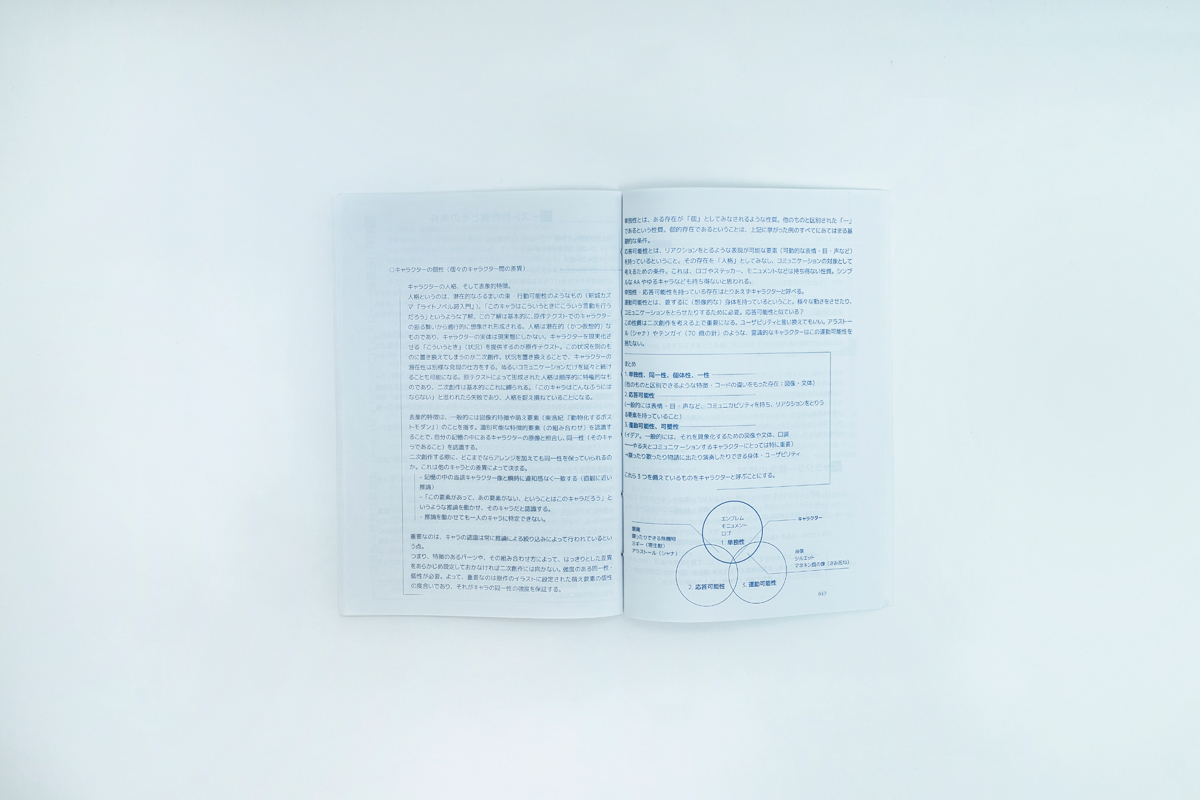 ○キャラクターの個性(個々のキャラクター間の差異)
キャラクターの人格、そして表象的特徴。
人格というのは、潜在的なふるまいの束・行動可能性のようなもの(新城カズ
マ『ライトノベル超入門』)。「このキャラはこういうときにこういう言動を行う
だろう」というような了解。この了解は基本的に、原作テキストでのキャラクター
の振る舞いから遡行的に想像され形成される。人格は潜在的(かつ仮想的)な
ものであり、キャラクターの実体は現実態にしかない。キャラクターを現実化さ
せる「こういうとき」(状況)を提供するのが原作テキスト。この状況を別のも
のに置き換えてしまうのが二次創作。状況を置き換えることで、キャラクターの
潜在性は別様な発現の仕方をする。ゆるいコミュニケーションだけを延々と続け
ることも可能になる。原テキストによって形成された人格は順序的に特権的なも
のであり、二次創作は基本的にこれに縛られる。「このキャラはこんなふうには
ならない」と思われたら失敗であり、人格を捉え損ねていることになる。
表象的特徴は、一般的には図像的特徴や萌え要素(東浩紀『動物化するポス
トモダン』)のことを指す。識別可能な特徴的要素(の組み合わせ)を認識す
ることで、自分の記憶の中にあるキャラクターの原像と照合し、同一性(そのキャ
ラであること)を認識する。
二次創作する際に、どこまでならアレンジを加えても同一性を保っていられるの
か。これは他のキャラとの差異によって決まる。
・記憶の中の当該キャラクター像と瞬時に違和感なく一致する(直観に近い
推論)
・「この要素があって、あの要素がない、ということはこのキャラだろう」と
いうような推論を働かせ、そのキャラだと認識する。
・推論を働かせても一人のキャラに特定できない。
重要なのは、キャラの認識は常に推論による絞り込みによって行われているとい
う点。
つまり、特徴のあるパーツや、その組み合わせ方によって、はっきりとした差異
をあらかじめ設定しておかなければ二次創作には向かない。強度のある同一性・
個性が必要。よって、重要なのは原作のイラストに設定された萌え要素の個性
の度合いであり、それがキャラの同一性の強度を保証する。
単独性とは、ある存在が「個」としてみなされるような性質。他のものと区別された「一」
であるという性質。個的存在であるということは、上記に挙がった例のすべてにあてはまる基
礎的な条件。
応答可能性とは、リアクションをとるような表現が可能な要素(可動的な表情・目・声など)
を持っているということ。その存在を「人格」としてみなし、コミュニケーションの対象として
考えるための条件。これは、ロゴやステッカー、モニュメントなどは持ち得ない性質。シンプ
ルなAAやゆるキャラなども持ち得ないと思われる。
単独性・応答可能性を持っている存在はとりあえずキャラクターと呼べる。
運動可能性とは、要するに(想像的な)身体を持っているということ。様々な動きをさせたり、
コミュニケーションをとらせたりするために必要。応答可能性と似ている?
この性質は二次創作を考える上で重要になる。ユーザビリティと言い換えてもいい。アラストー
ル(シャナ)やテンガイ(70億の針)のような、意識的なキャラクターはこの運動可能性を
持たない。
まとめ
1.単独性、同一性、個体性、一性
(他のものと区別できるような特徴・コードの違いをもった存在:図像・文体)
2.応答可能性
(一般的には表情・目・声など、コミュニカビリティを持ち、リアクションをとりう
る要素を持っていること)
3.運動可能性、可塑性
(イデア。一般的には、それを具象化するための図像や文体、口調
──やる夫とコミュニケーションするキャラクターにとっては特に重要)
→踊ったり歌ったり物語に出たり演奏したりできる身体・ユーザビリティ
これら3つを備えているものをキャラクターと呼ぶことにする。
エンブレム
モニュメント
ロゴ
1.単独性
キャラクター
意識
喋ったりできる無機物
ミギー(寄生獣)
アラストール(シャナ)
背景
シルエット
マネキン風の像(さみだな)
2.応答可能性
3.運動可能性